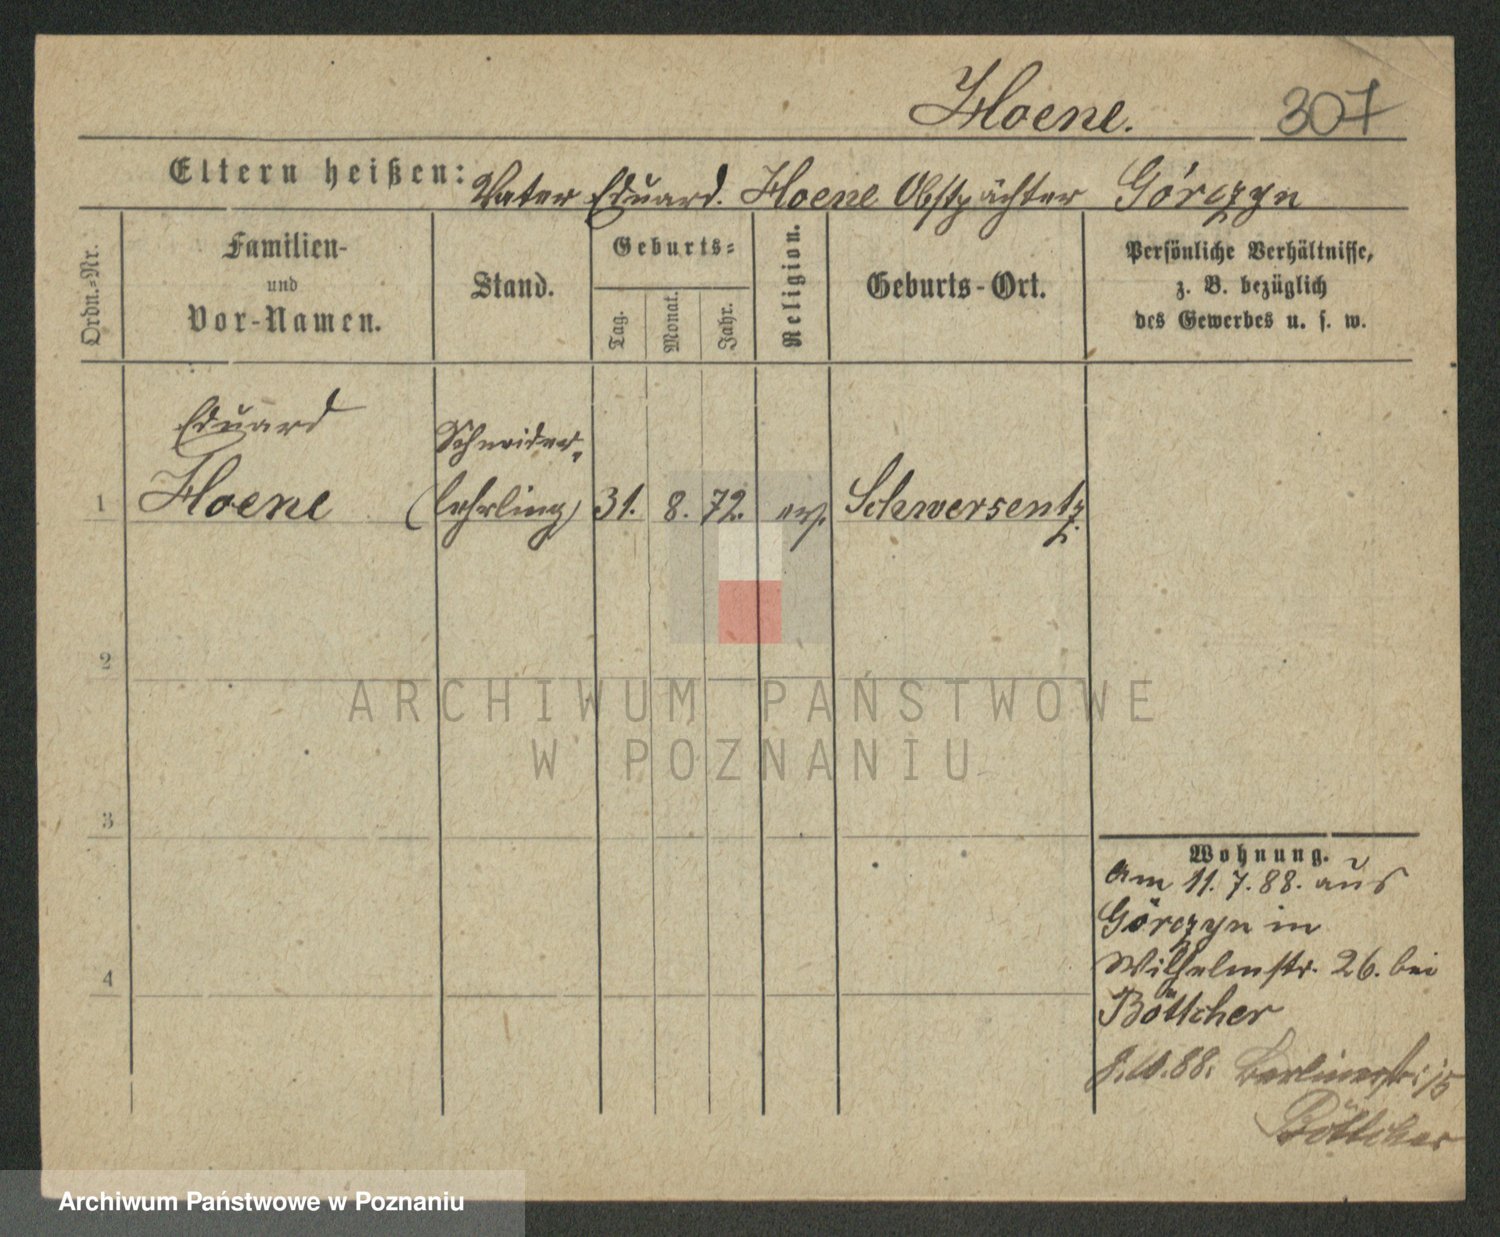 Hoene. 307
Eltern heißen: Vater Eduard. Hoene Obstpächter Górczyn
Ordn.-Nr.
Familien-
und
Vor-Namen.
Stand.
Geburts-
Tag.
Monat.
Jahr.
Religion.
Geburts-Ort.
Persönliche Verhältnisse,
z. B. bezüglich
des Gewerbes u. s. w.
Eduard
Schneider-
1 Hoene (lehrling) 31. 8. 72. ev. Schwersentz.
2
3
4
Wohnung.
am 11. 7. 88. aus
Görczyn in
Wilhelmstr. 26. bei
Böttcher
88. Berlinerstr. 15
Böttcher
ARCHIWUM PAŃSTWOWE
W POZNANIU
Archiwum Państwowe w Poznaniu